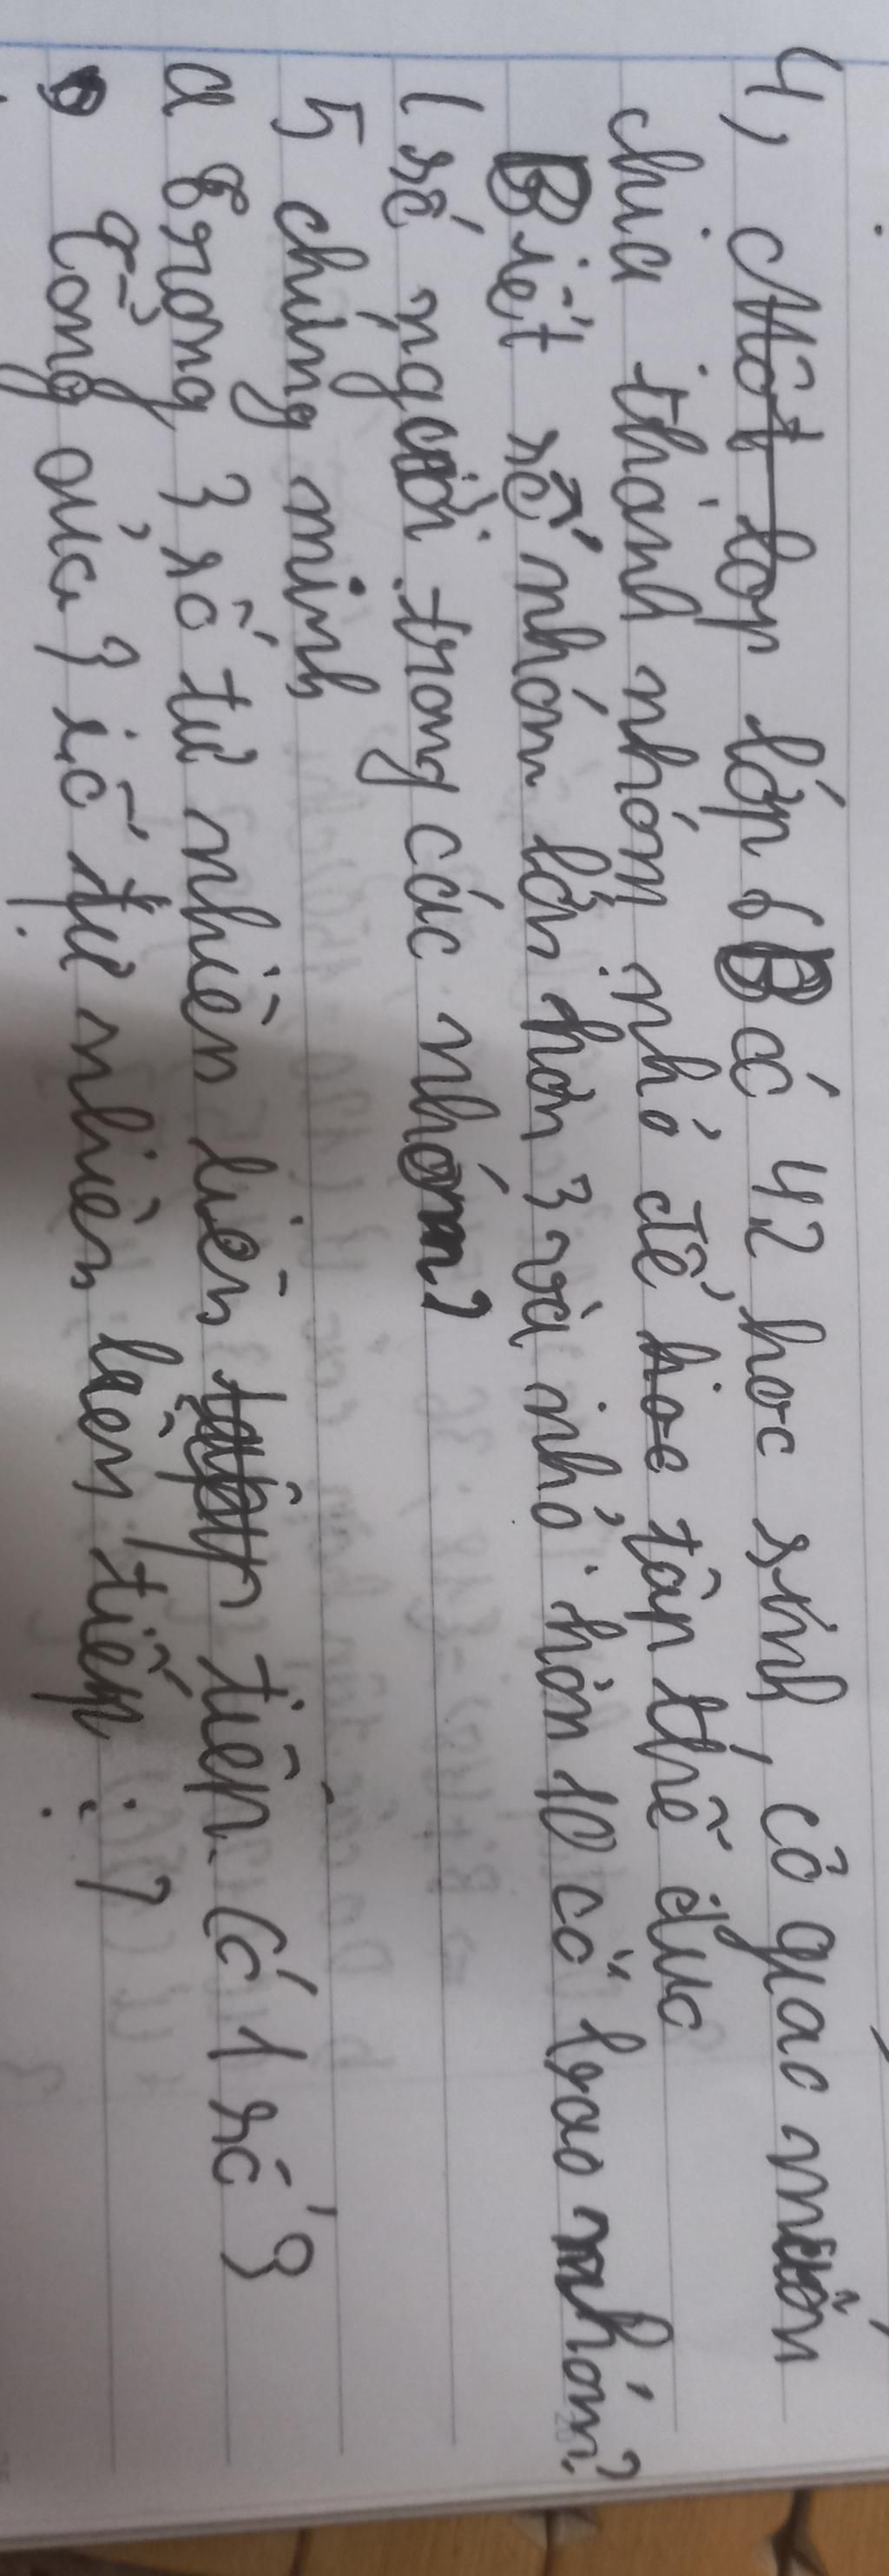 4, Một lop lớp 6B có 42 học sinh, cô giáo muốn
chia thành nhóm nhỏ để học tập thể dục
Biết số nhóm lớn hơn 3 và nhỏ hơn 10 có bao nhóm?
1 số người trong các nhóm?
5 chứng minh
a Trong 3 số tự nhiên liên tiếp có 1 số 3
Tổng của 3 số tự nhiên liên tiếp : ?